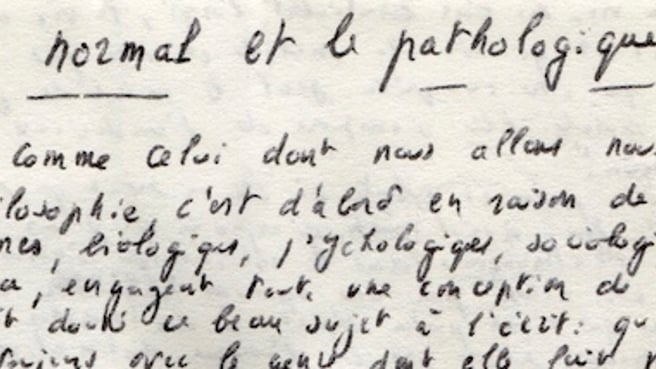 normal et le pathologique
comme celui dont nous allons nous
losophie, c'est d'abord en raison de
biologiques, psychologiques, sociologi
engagent toute une conception de
ce beau sujet à l'écrit: qu
avec le dont elle fait